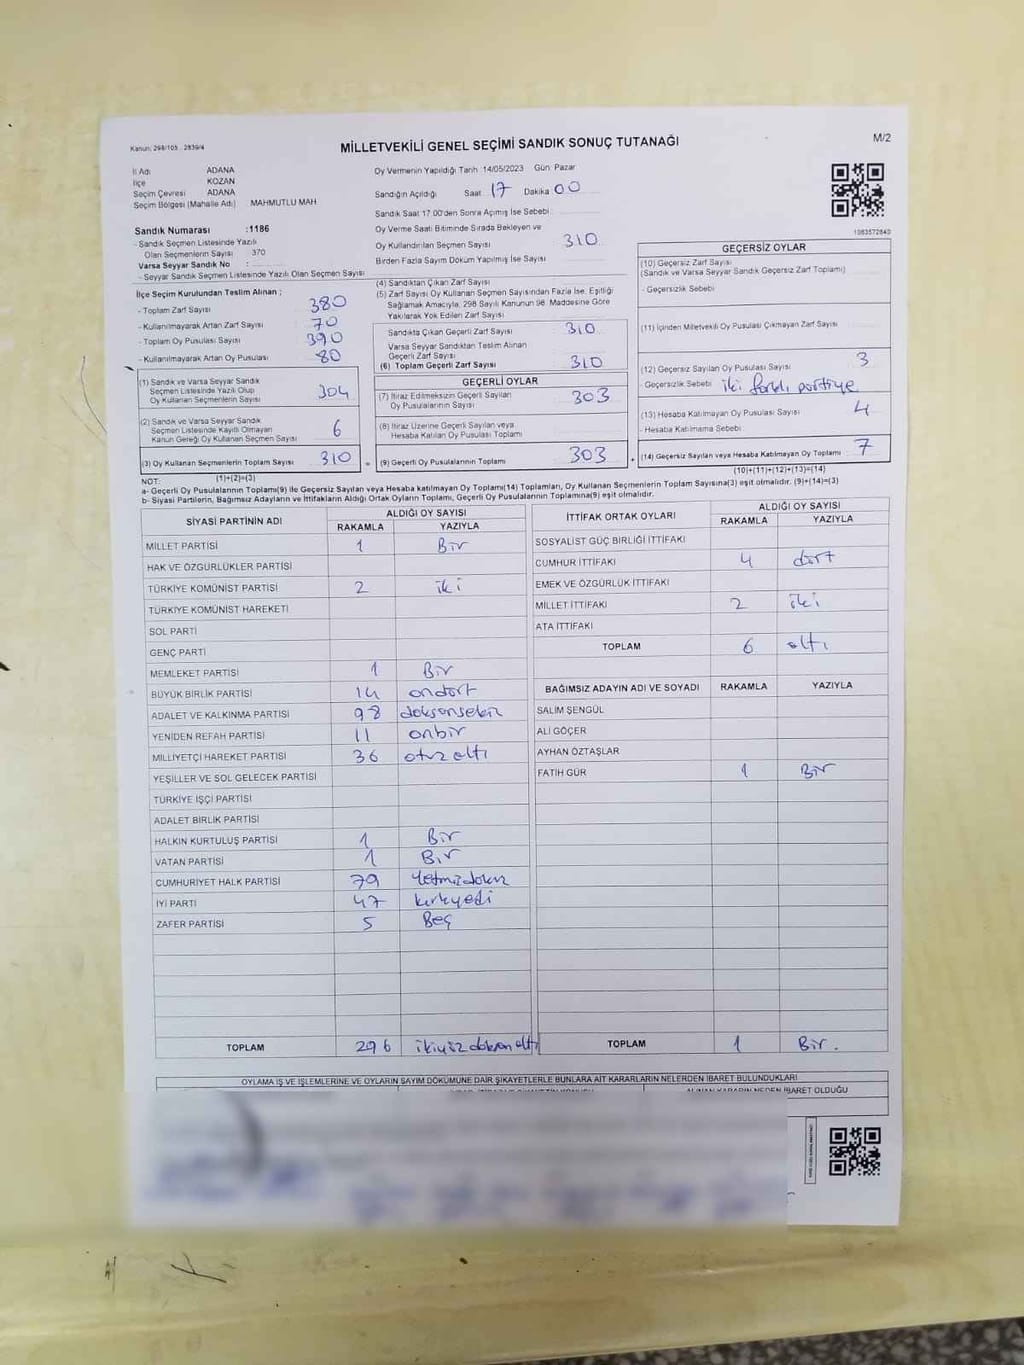 Kanun: 298/105 - 2839/4
MİLLETVEKİLİ GENEL SEÇİMİ SANDIK SONUÇ TUTANAĞI
M/2
İl Adı ADANA
İlçe KOZAN
Seçim Çevresi ADANA
Seçim Bölgesi (Mahalle Adı) MAHMUTLU MAH
Sandık Numarası :1186
- Sandık Seçmen Listesinde Yazılı
Olan Seçmenlerin Sayısı 370
Varsa Seyyar Sandık No :
- Seyyar Sandık Seçmen Listesinde Yazılı Olan Seçmen Sayısı
Oy Vermenin Yapıldığı Tarih 14/05/2023 Gün Pazar
Sandığın Açıldığı Saat 17 Dakika 00
Sandık Saat 17.00'den Sonra Açımış İse Sebebi :
Oy Verme Saati Bitiminde Sırada Bekleyen ve
Oy Kullandırılan Seçmen Sayısı 310
Birden Fazla Sayım Döküm Yapılmış İse Sayısı
1083572840
İlçe Seçim Kurulundan Teslim Alınan ;
- Toplam Zarf Sayısı 380
- Kullanılmayarak Artan Zarf Sayısı 70
- Toplam Oy Pusulası Sayısı 390
- Kullanılmayarak Artan Oy Pusulası 80
(1) Sandık ve Varsa Seyyar Sandık
Seçmen Listesinde Yazılı Olup
Oy Kullanan Seçmenlerin Sayısı 304
(2) Sandık ve Varsa Seyyar Sandık
Seçmen Listesinde Kayıtlı Olmayan
Kanun Gereği Oy Kullanan Seçmen Sayısı 6
(3) Oy Kullanan Seçmenlerin Toplam Sayısı 310
(1)+(2)=(3)
(4) Sandıktan Çıkan Zarf Sayısı
(5) Zarf Sayısı Oy Kullanan Seçmen Sayısından Fazla İse, Eşitliği
Sağlamak Amacıyla, 298 Sayılı Kanunun 98. Maddesine Göre
Yakılarak Yok Edilen Zarf Sayısı
Sandıkta Çıkan Geçerli Zarf Sayısı 310
Varsa Seyyar Sandıktan Teslim Alınan
Geçerli Zarf Sayısı
(6) Toplam Geçerli Zarf Sayısı 310
GEÇERLİ OYLAR
(7) İtiraz Edilmeksizin Geçerli Sayılan
Oy Pusulalarının Sayısı 303
(8) İtiraz Üzerine Geçerli Sayılan veya
Hesaba Katılan Oy Pusulası Toplamı
= (9) Geçerli Oy Pusulalarının Toplamı 303 +
GEÇERSİZ OYLAR
(10) Geçersiz Zarf Sayısı
(Sandık ve Varsa Seyyar Sandık Geçersiz Zarf Toplamı)
- Geçersizlik Sebebi
(11) İçinden Milletvekili Oy Pusulası Çıkmayan Zarf Sayısı
(12) Geçersiz Sayılan Oy Pusulası Sayısı 3
- Geçersizlik Sebebi iki farklı partiye
(13) Hesaba Katılmayan Oy Pusulası Sayısı 4
- Hesaba Katılmama Sebebi
(14) Geçersiz Sayılan veya Hesaba Katılmayan Oy Toplamı 7
(10)+(11)+(12)+(13)=(14)
NOT:
a- Geçerli Oy Pusulalarının Toplamı(9) ile Geçersiz Sayılan veya Hesaba Katılmayan Oy Toplamı(14) Toplamları, Oy Kullanan Seçmenlerin Toplam Sayısına(3) eşit olmalıdır. (9)+(14)=(3)
b- Siyasi Partilerin, Bağımsız Adayların ve İttifakların Aldığı Ortak Oyların Toplamı, Geçerli Oy Pusulalarının Toplamına(9) eşit olmalıdır.
SİYASİ PARTİNİN ADI ALDIĞI OY SAYISI
RAKAMLA YAZIYLA
MİLLET PARTİSİ 1 Bir
HAK VE ÖZGÜRLÜKLER PARTİSİ
TÜRKİYE KOMÜNİST PARTİSİ 2 iki
TÜRKİYE KOMÜNİST HAREKETİ
SOL PARTİ
GENÇ PARTİ
MEMLEKET PARTİSİ 1 Bir
BÜYÜK BİRLİK PARTİSİ 14 ondört
ADALET VE KALKINMA PARTİSİ 98 doksansekiz
YENİDEN REFAH PARTİSİ 11 onbir
MİLLİYETÇİ HAREKET PARTİSİ 36 otuzaltı
YEŞİLLER VE SOL GELECEK PARTİSİ
TÜRKİYE İŞÇİ PARTİSİ
ADALET BİRLİK PARTİSİ
HALKIN KURTULUŞ PARTİSİ 1 Bir
VATAN PARTİSİ 1 Bir
CUMHURİYET HALK PARTİSİ 79 Yetmişdokuz
İYİ PARTİ 47 kırkyedi
ZAFER PARTİSİ 5 Beş
TOPLAM 296 ikiyüzdoksanaltı
İTTİFAK ORTAK OYLARI ALDIĞI OY SAYISI
RAKAMLA YAZIYLA
SOSYALİST GÜÇ BİRLİĞİ İTTİFAKI
CUMHUR İTTİFAKI 4 dört
EMEK VE ÖZGÜRLÜK İTTİFAKI
MİLLET İTTİFAKI 2 iki
ATA İTTİFAKI
TOPLAM 6 altı
BAĞIMSIZ ADAYIN ADI VE SOYADI RAKAMLA YAZIYLA
SALİM ŞENGÜL
ALİ GÖÇER
AYHAN ÖZTAŞLAR
FATİH GÜR 1 Bir
TOPLAM 1 Bir.
OYLAMA İŞ VE İŞLEMLERİNE VE OYLARIN SAYIM DÖKÜMÜNE DAİR ŞİKAYETLERLE BUNLARA AİT KARARLARIN NELERDEN İBARET BULUNDUKLARI
ALINAN KARARIN NEDEN İBARET OLDUĞU